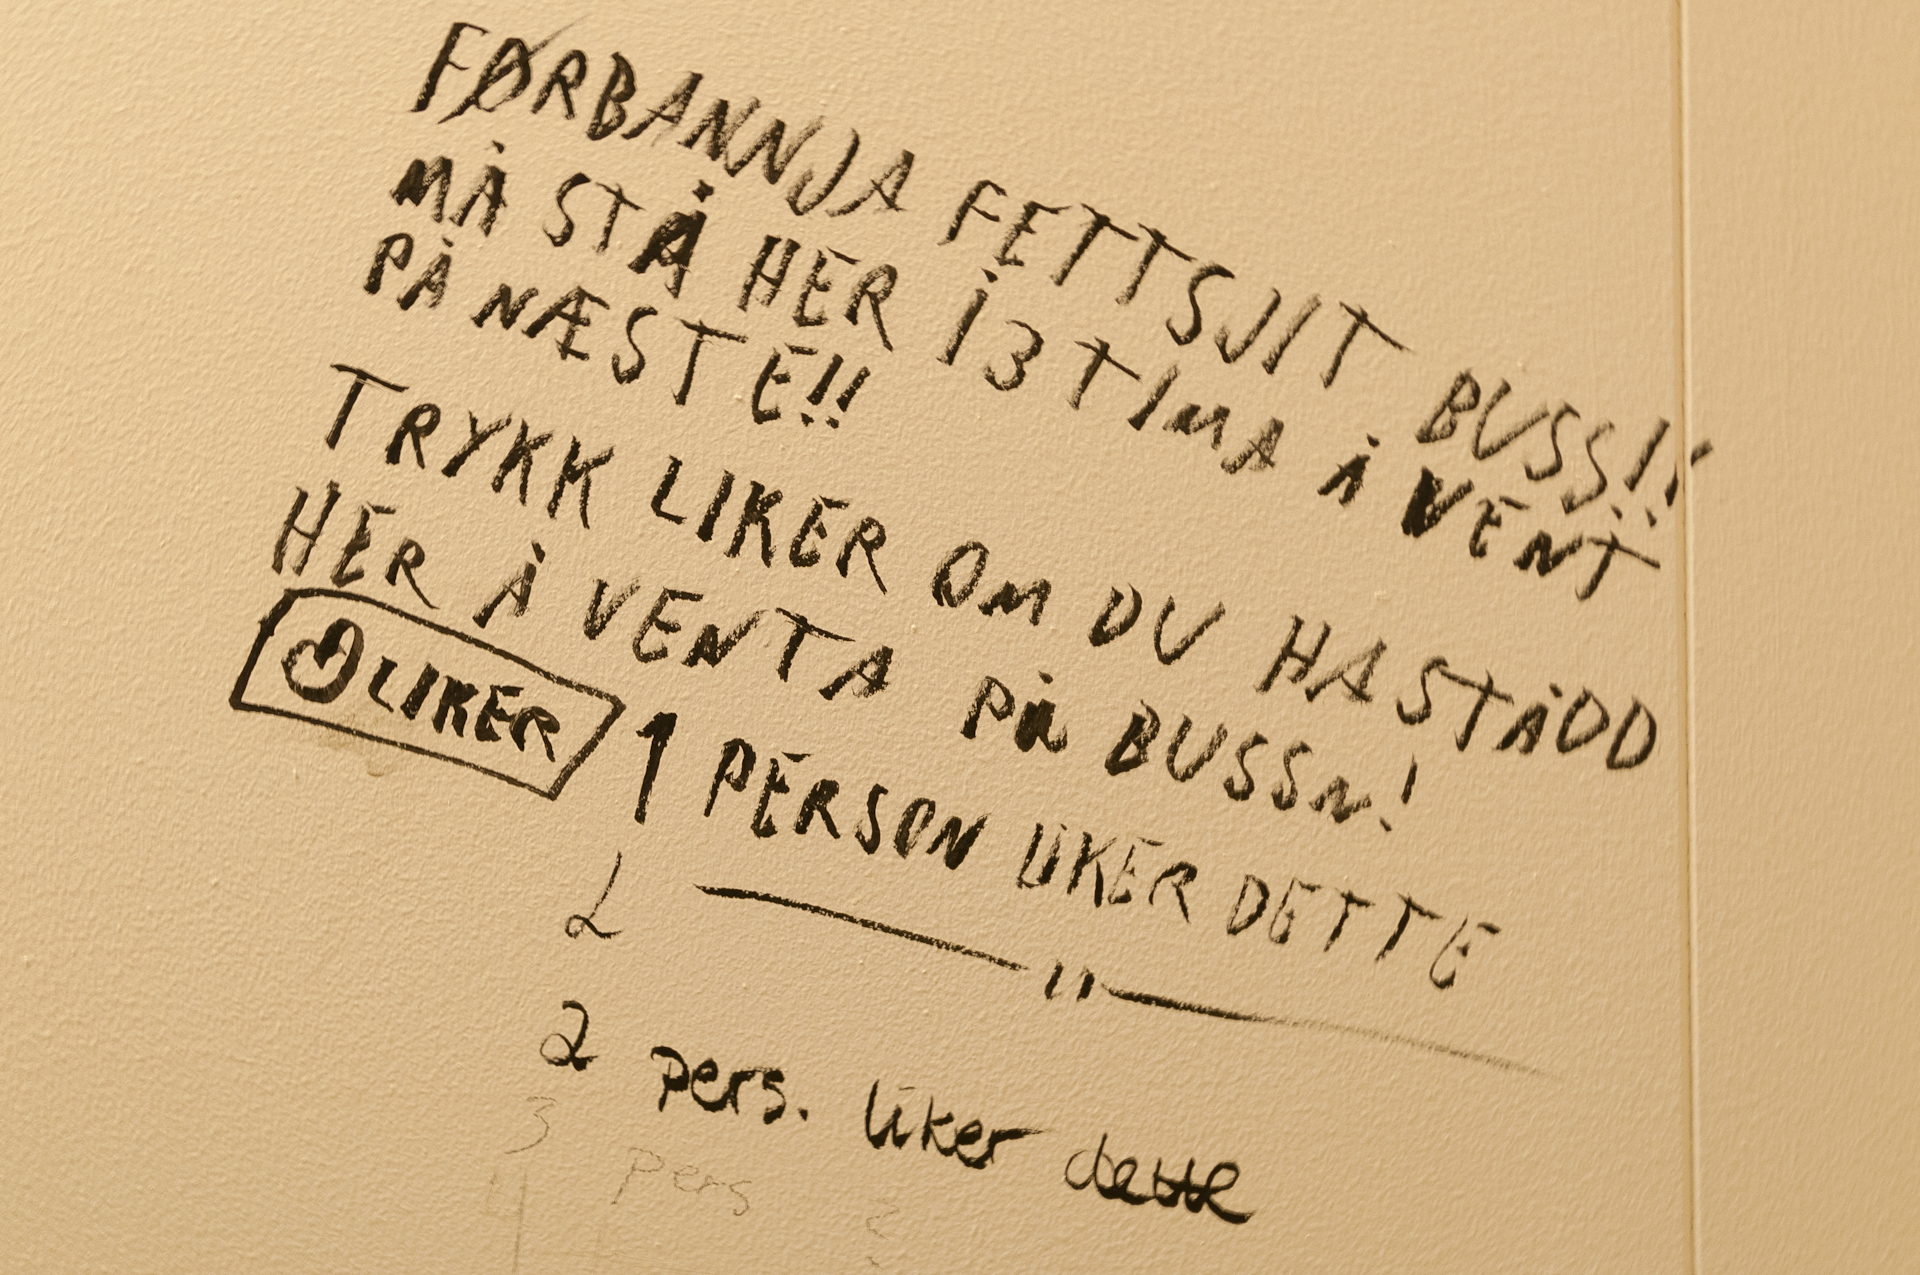 FØRBANNJA FETTSJIT BUSS!!
MÅ STÅ HER I 3 TIMA Å VENT
PÅ NÆSTE!!
TRYKK LIKER OM DU HA STÅDD
HER Å VENTA PÅ BUSSN!
LIKER
1 PERSON LIKER DETTE
2 —— " ——
2 pers. liker dette
3 pers
4